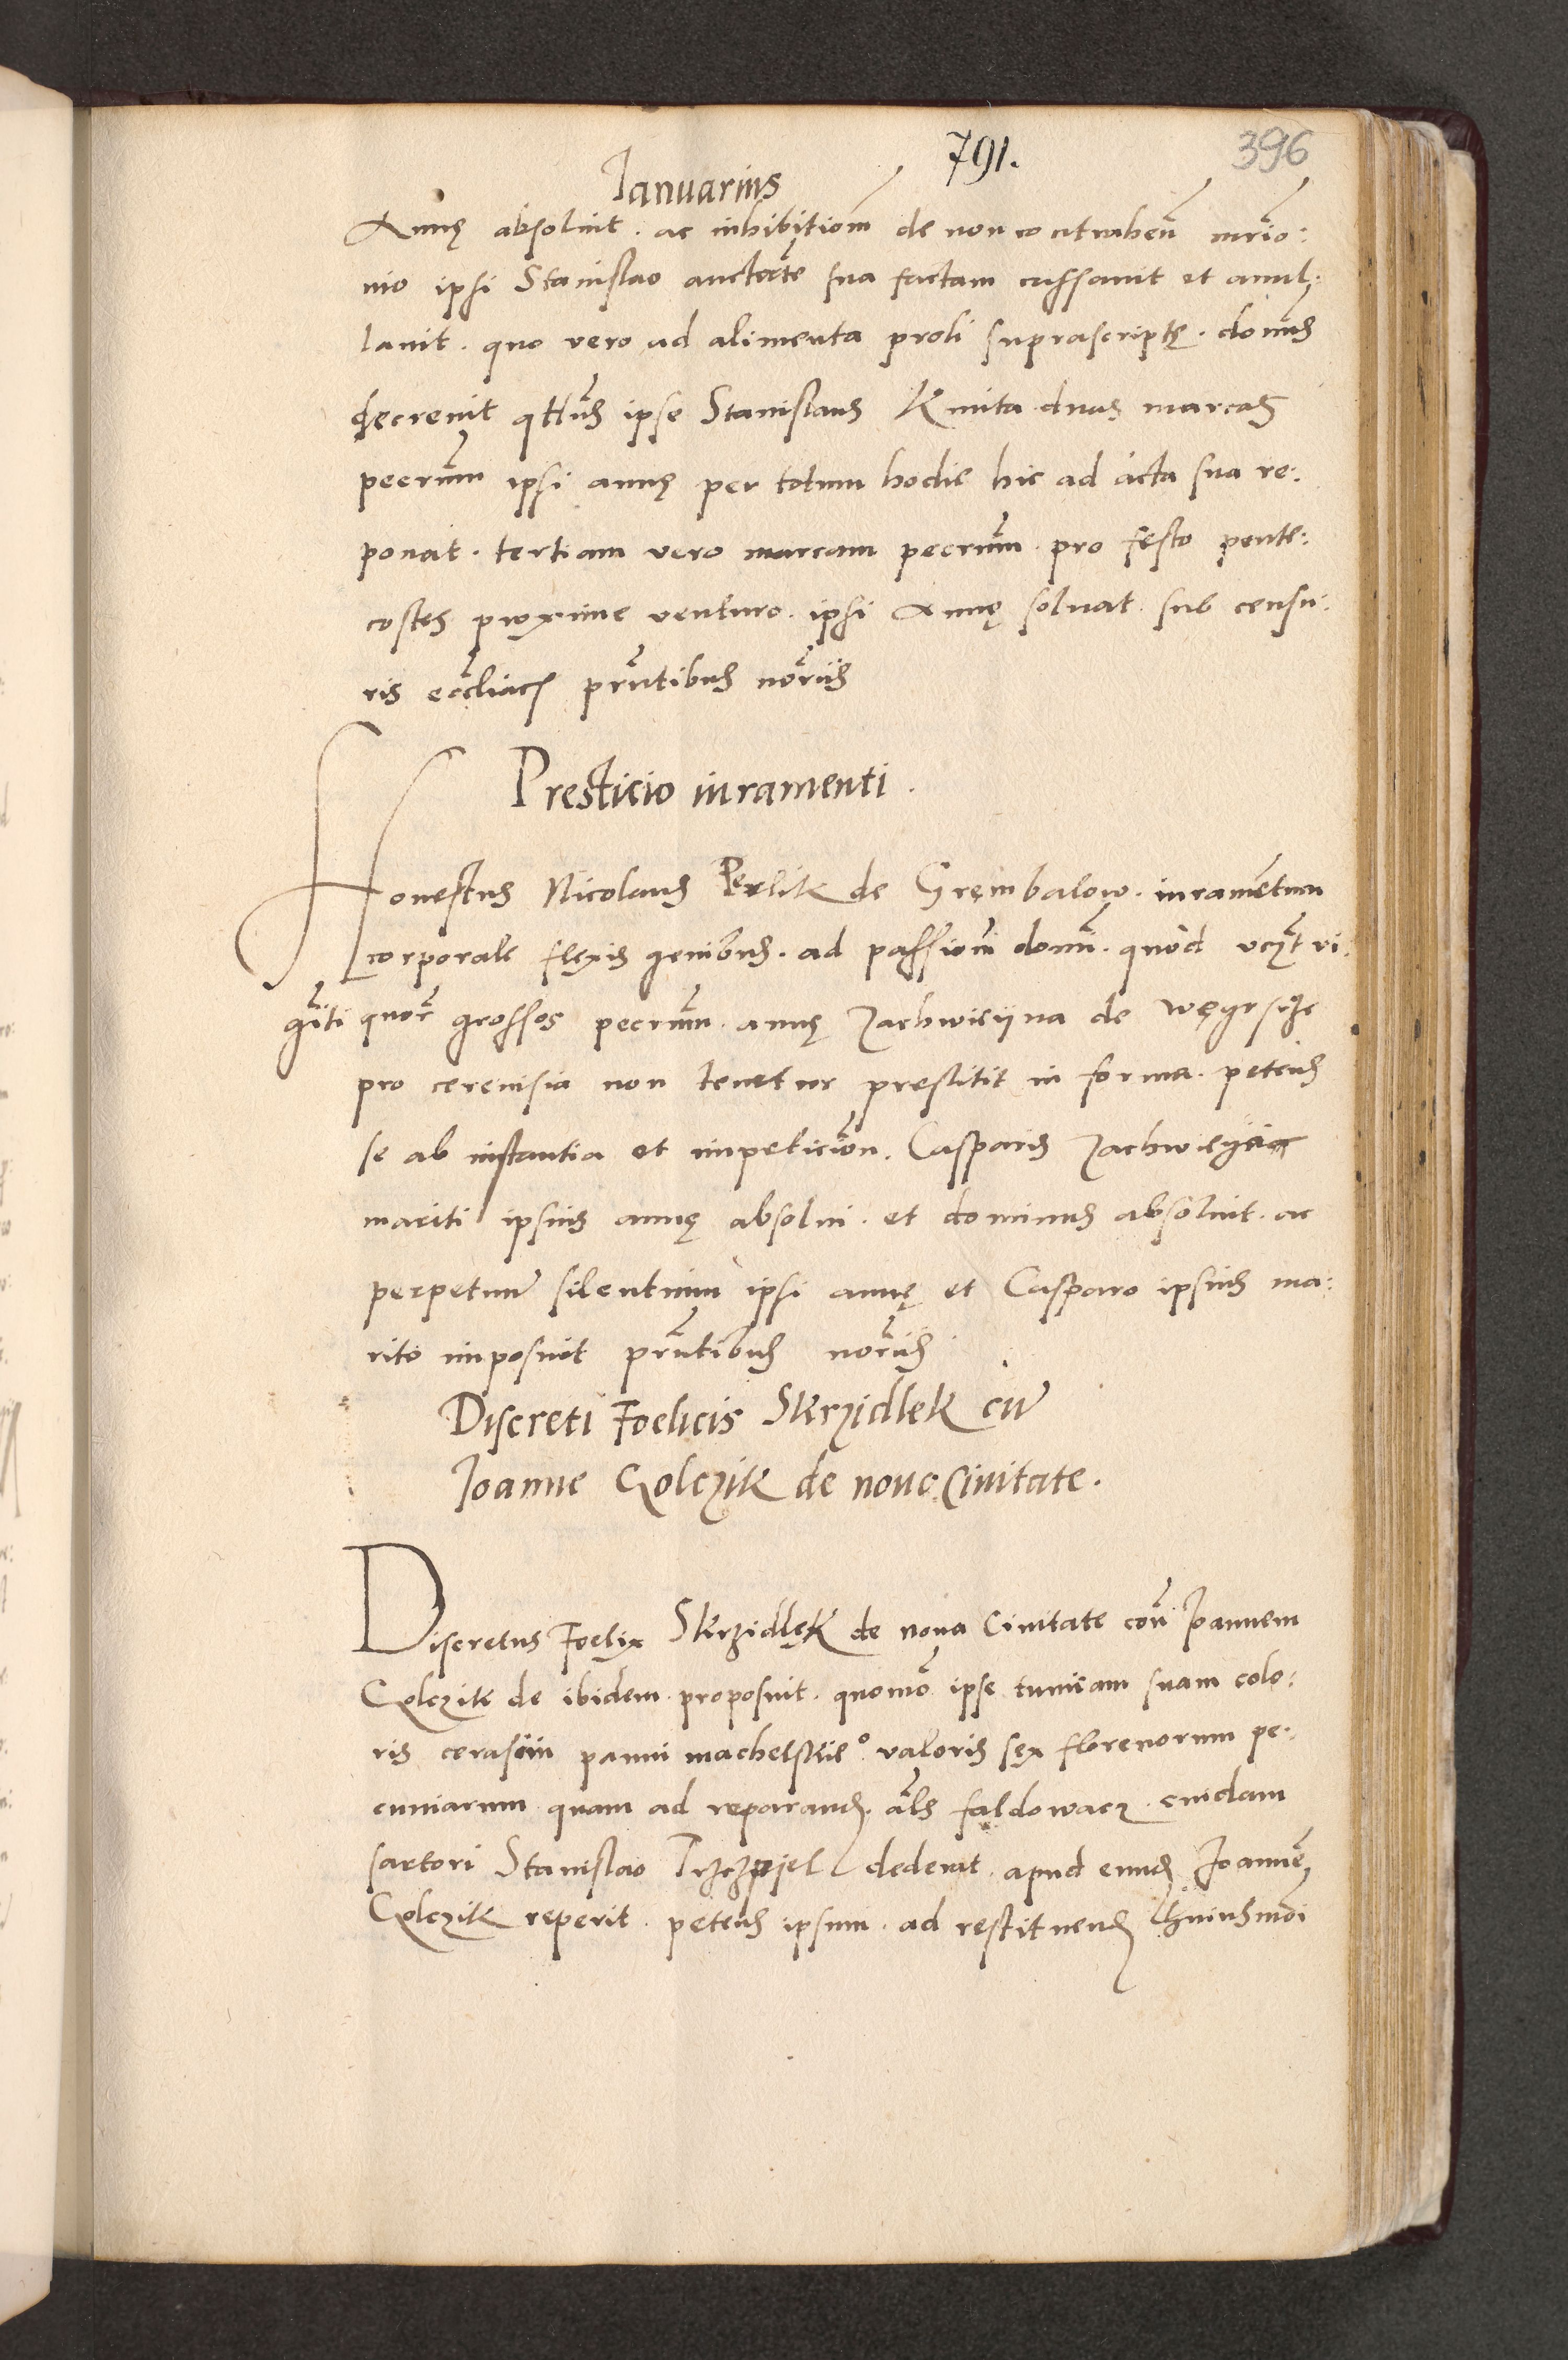 791.
396
Ianuarius
Annę absoluit . ac inhibitiom̃ de non contrahen̄ mr̄io:
nio ipsi Stanislao auctorte sua factam cassauit et anul:
lauit . quo vero ad alimenta proli suprascriptę . domin̄s
decreuit qttūs ipse Stanislaus Kmita duas marcas
pecnīm ipsi annę per totum hodie hic ad acta sua re:
ponat . tertiam vero marcam pecnīm . pro festo pente:
costes proxime venturo . ipsi Annę soluat . sub censu:
ris ecclīacis prn̄tibus nor̄iis
Presticio iuramenti .
Honestus Nicolaus Perlik de Grembalow . iuramentum
corporale flexis genibus . ad passioni domī . quod vcꝫt vi:
gīti quor̄ grossos pecnīm . annę Jachwicÿna de Węgrscze
pro cereuisia non tenetur prestitit in forma . petens
se ab instantia et impeticion̄ . Casparis Jachwicÿ
mariti ipsius annę absolui . et dominus absoluit . ac
perpetuū silentium ipsi annę et Casparo ipsius ma:
rito imposuit prn̄tibus nor̄iis
Discreti Foelicis Skrzidlek cū
Ioanne Golczik de noua Ciuitate .
Discretus Foelix Skrzidlęk de noua Ciuitate con̄ Ioannem
Golczik de ibidem proposuit . quomō ipse tunicam suam colo:
ris cerasiin panni machelskie° valoris sex florenorum pe:
cuniarum quam ad reparand̄ . als̄ faldowacz . cuidam
sartori Stanislao dederat . apud eund̄ Joannē
Golczik reperit . petens ipsum . ad restituend̄ huiusmōi